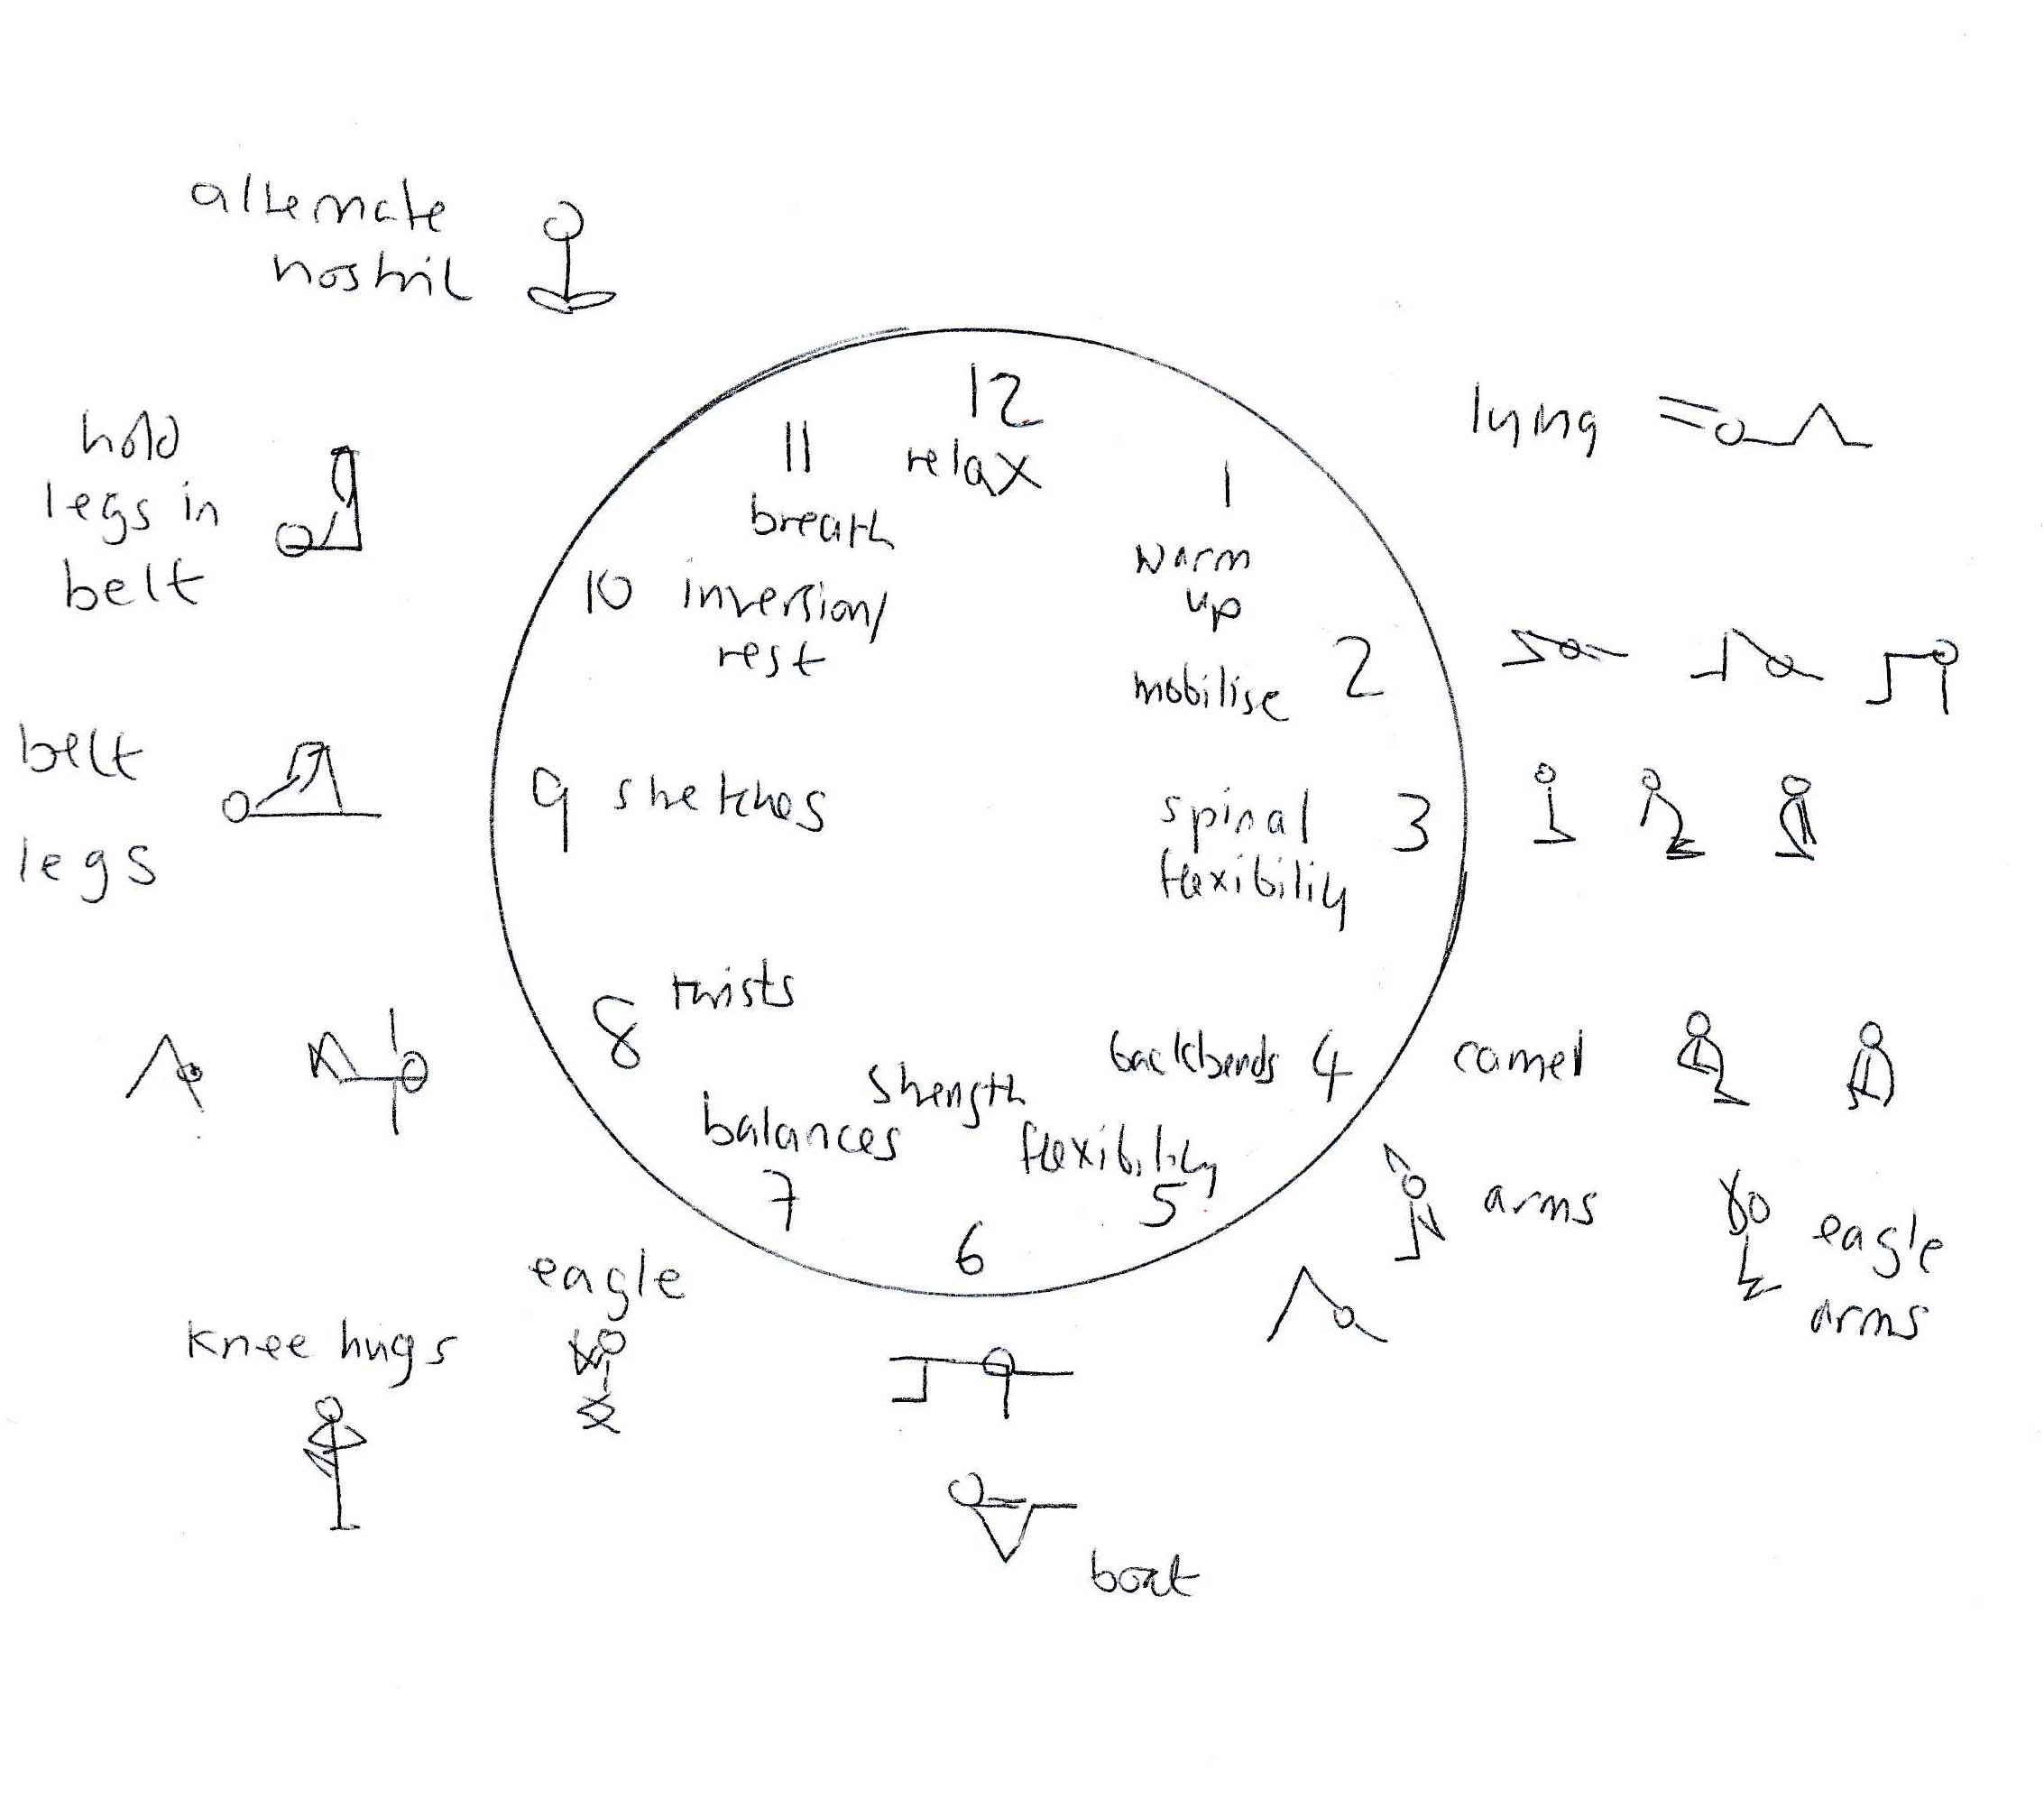 alternate
nostril
12
relax
11
breath
1
warm
up
lying
hold
legs in
belt
10 inversion/
rest
mobilise 2
belt
legs
9 stretches
spinal 3
flexibility
8 twists
backbends 4
camel
strength
balances
flexibility
7
5
6
arms
eagle
arms
eagle
knee hugs
boat